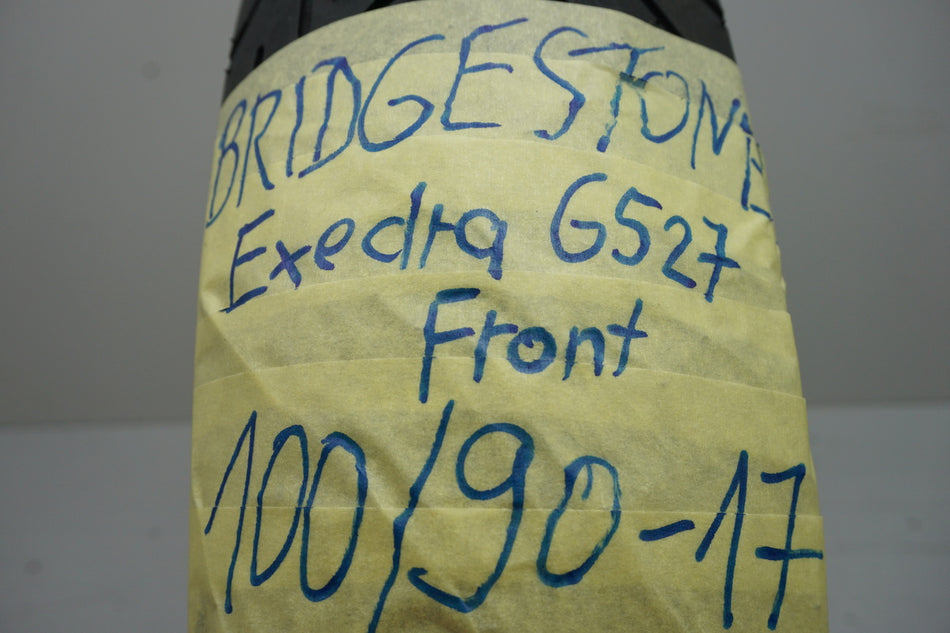 BRIDGESTONE
Exedra G527
Front
100/90-17